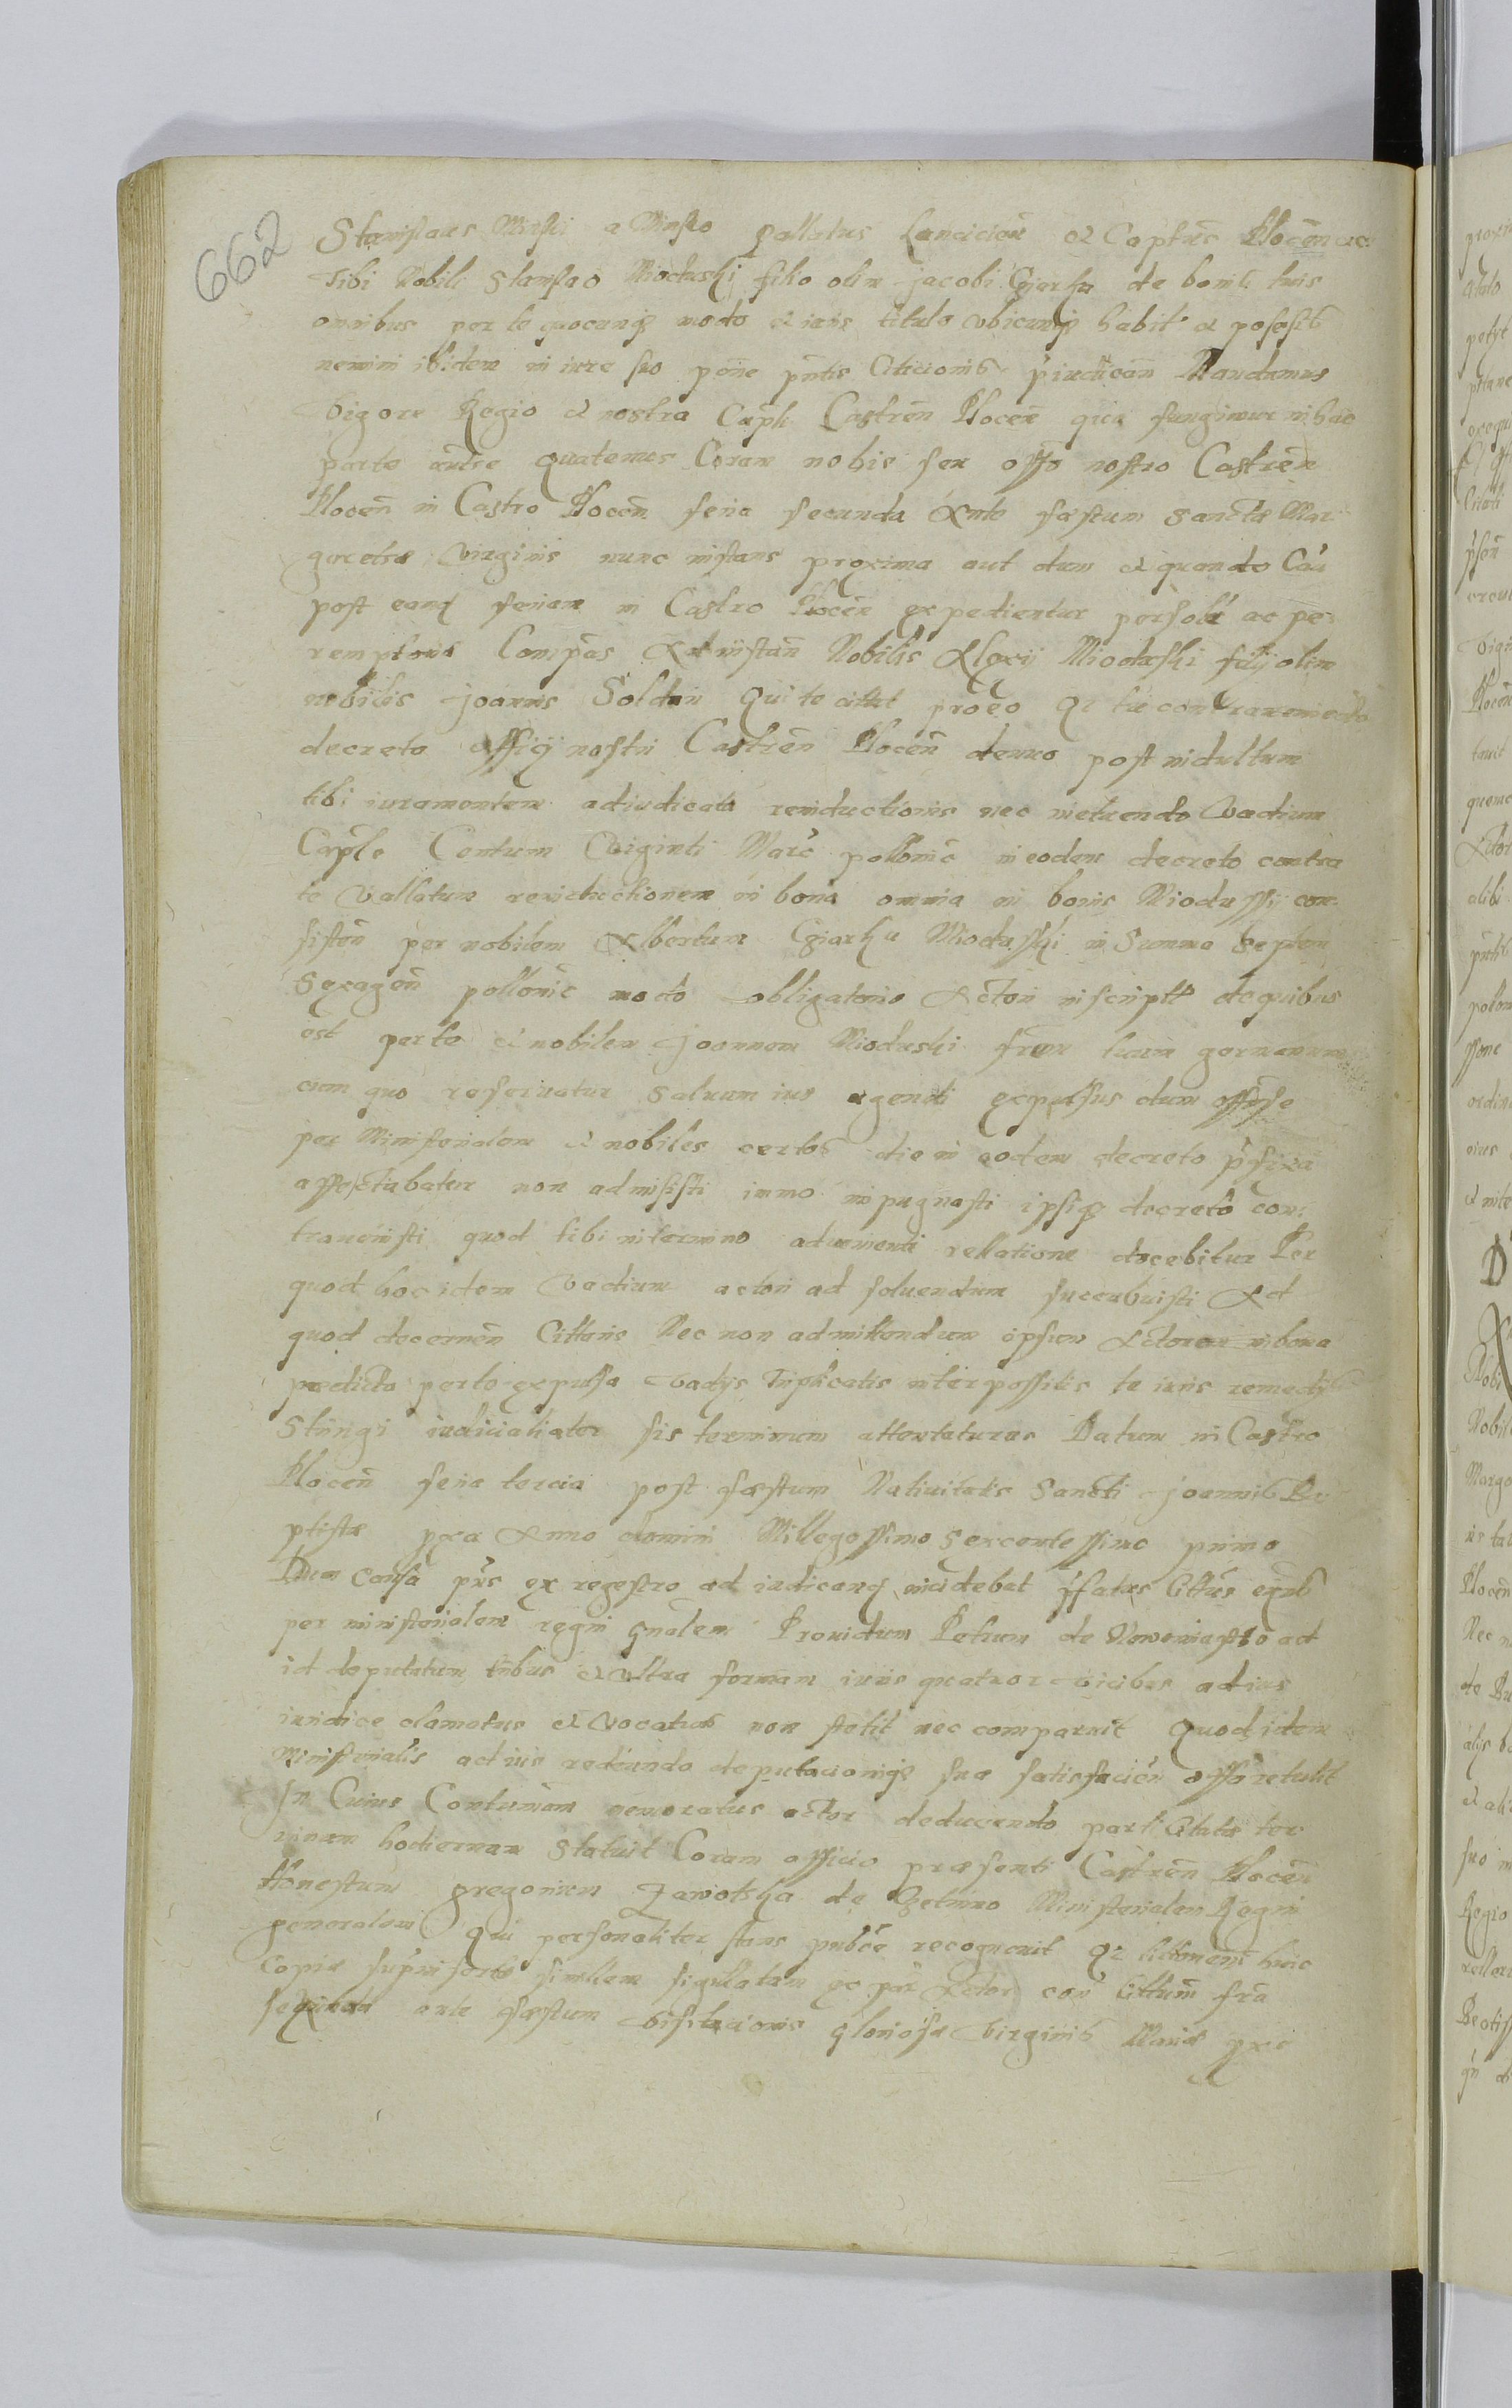 662
Stanislaus Minski a Minsko pallatus Lancicien et Captus Plocen etc
Tibi Nobili Stanislao Mioduski filio olim Jacobi Gziarka de bonis tuis
omnibus per te quocunq modo et iuris titulo ubicunq habit et posessis
nemini ibidem in iure suo pone pntis Citicionis piudican Mandamus
Vigore Regio et nostra Capli Castren Plocen qua fungimur in hac
parte autte quatenus Coram nobis seu offo nostro Castren
Plocen in Castro Plocen feria secunda Ante festum Sanctæ Mar
garetæ Virginis nunc instans proxima aut dum et quando Cau
post eand feriam in Castro Plocen expedientur persolr ac pe
remptorie Compas Ad instan Nobilis Alexij Mioduski filij olim
nobilis Joannis Soldan Qui te citat proeo Qr tu contraveniendo
decreto officij nostri Castren Plocen denuo post indultum
tibi iuramentum adiudicata reinductionis nec metuendo Vadium
Caple Centum Viginti Marc polonic in eodem decreto contra
te Vallatum reinductionem in bona omnia in bonis Miodussij con
sisten per nobilem Albertum Gziarka Miodusski in Summa Septem
Sexagen polonic modo obligatorio Actori inscripta de quibus
est per te et nobilem Joannem Mioduski frem tuum germanum
cum quo reservatur Saluum ius agendi expulsus dum offose
per Ministerialem et nobiles certos die in eodem decreto pfixa
affectabatur non admisisti immo inpugnasti ipsiq decreto con
travenisti quod tibi in termino advenienti rellatione docebitur Per
quod hoc idem Vadium actori ad soluendum sucubuisti Ad
quod decernen Cittaris Nec non admittendum ipsum Actorem in bona
predicta per te expulsa Vadijs Triplicatis interpossitis te iuris remedijs
Stringi iudicialiater sis terminum attentaturus Datum in Castro
Plocen feria tercia post festum Nativitatis Sancti Joannis Ba
ptistæ pxa Anno domini Millegessimo Sexcentessimo primo
Dum Causa pns ex regestro ad iudicand incidebat pfatus Cittus
per ministerialem regni gnalem Providum Petrum de Nowemiasto ad
id deputatum tribus et Ultra formam iuris quatuor vicibus ad ius
iuridice clamatus et Vocatus non stetit nec comparuit Quod idem
Ministerialis ad ius redeundo deputacioniq suæ satisfacien offo retulit
In Cuius Contumam memoratus actor deducendo parti Citatæ ter
minum hodiernum Statuit Coram officio præsenti Castren Plocen
Honestum gregorium Zawotka de Ministerialem Regni
generalem Qui personaliter stans pubce recognovit Qr littemeni huic
Copiæ supinserte similem sigillatam ex par Actor con Cittum fra
secunda ante festum Visitacionis gloriosæ Virginis Mariæ pxe